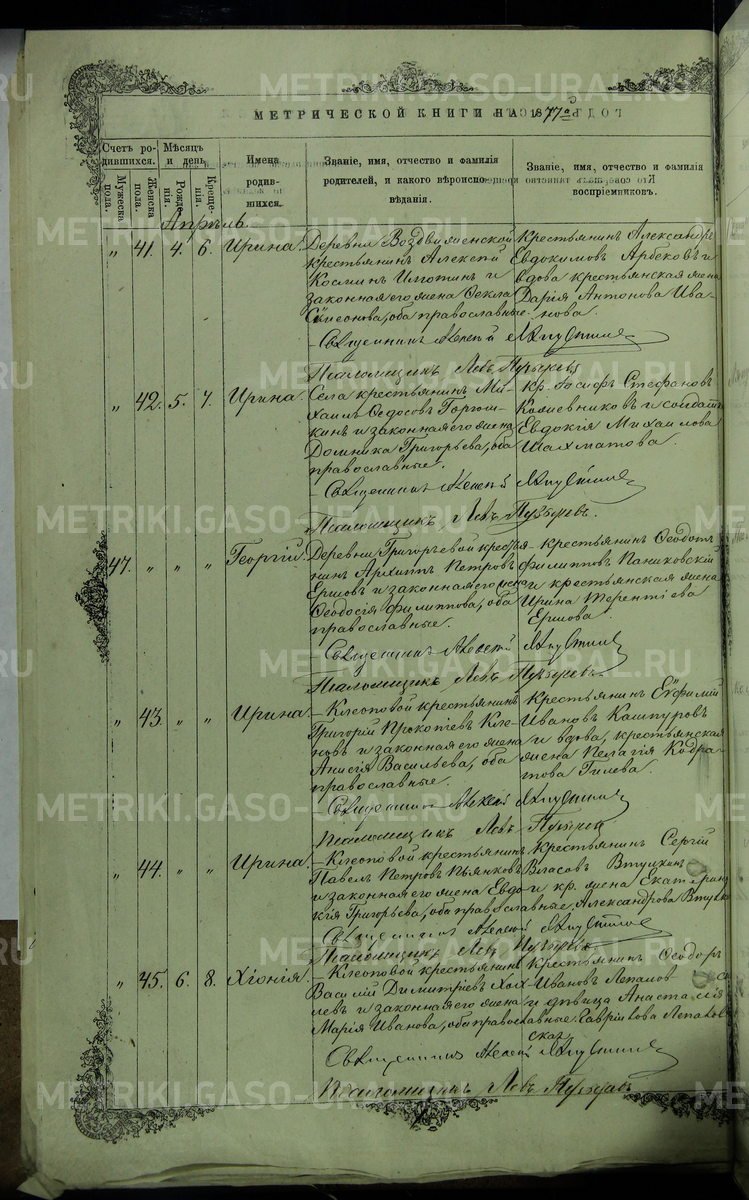 METRIKI.GASO-URAL.RU
МЕТРИЧЕСКОЙ КНИГИ НА 1877 ГОДЪ
Счетъ родившихся.
Мужеска пола.
Женска пола.
Мѣсяцъ и день.
Рожденія.
Крещенія.
Имена родившихся.
Званіе, имя, отчество и фамилія родителей, и какого вѣроисповѣданія.
Званіе, имя, отчество и фамилія воспріемниковъ.
Апрѣль.
„ 41. 4. 6. Ирина.
Деревни Воздвиженской
крестьянинъ Алексѣй
Косминъ и
законная его жена Ѳекла
Симеонова, оба православные
Крестьянинъ Александръ
Евдокимовъ Арбековъ и
вдова крестьянская жена
Дарія Антонова Ива-
нова.
Священникъ Алексій
Псаломщикъ Левъ Пузыревъ
„ 42. 5. 7. Ирина.
Села крестьянинъ Ми-
хаилъ Ѳедосовъ
кинъ и законная его жена
Домника Григорьева, оба
православные.
Кр. Іосифъ Стефановъ
Кожевниковъ и солдатк
Евдокія Михаилова
Шахматова.
Священникъ Алексій
Псаломщикъ Левъ Пузыревъ.
47. „ „ „ Георгій.
Деревни Григорьевой кресть-
нинъ Архиппъ Петровъ
Ершовъ и законная его жена
Ѳеодосія Филиппова, оба
православные.
я- крестьянинъ Ѳеодотъ
Филипповъ Паниковскій
и крестьянская жена
Ирина Терентіева
Ершова.
Священникъ Алексій
Псаломщикъ Левъ Пузыревъ.
„ 43. „ „ Ирина.
- Клеоповой крестьянинъ
Григорій Прокопіевъ Клео-
повъ и законная его жена
Анисія Васильева, оба
православные.
Крестьянинъ Евфимій
Ивановъ Кашпуровъ
и вдова, крестьянская
жена Пелагія Кодра-
това Гилева.
Священникъ Алексій
Псаломщикъ Левъ Пузыревъ
„ 44. „ „ Ирина.
- Клеоповой крестьянинъ
Павелъ Петровъ Пьянковъ
и законная его жена Евдо-
кія Григорьева, оба православные.
Крестьянинъ Сергій
Власовъ Втулкинъ
и кр. жена Екатерина
Александрова
Священникъ Алексій
Псаломщикъ Левъ Пузыревъ.
„ 45. 6. 8. Хіонія.
- Клеоповой крестьянинъ
Василій Димитріевъ
левъ и законная его жена
Марія Ивановa, оба православные.
Крестьянинъ Ѳеодоръ
Ивановъ
и дѣвица Анастасія
Гавріилова
Священникъ Алексій
Псаломщикъ Левъ Пузыревъ